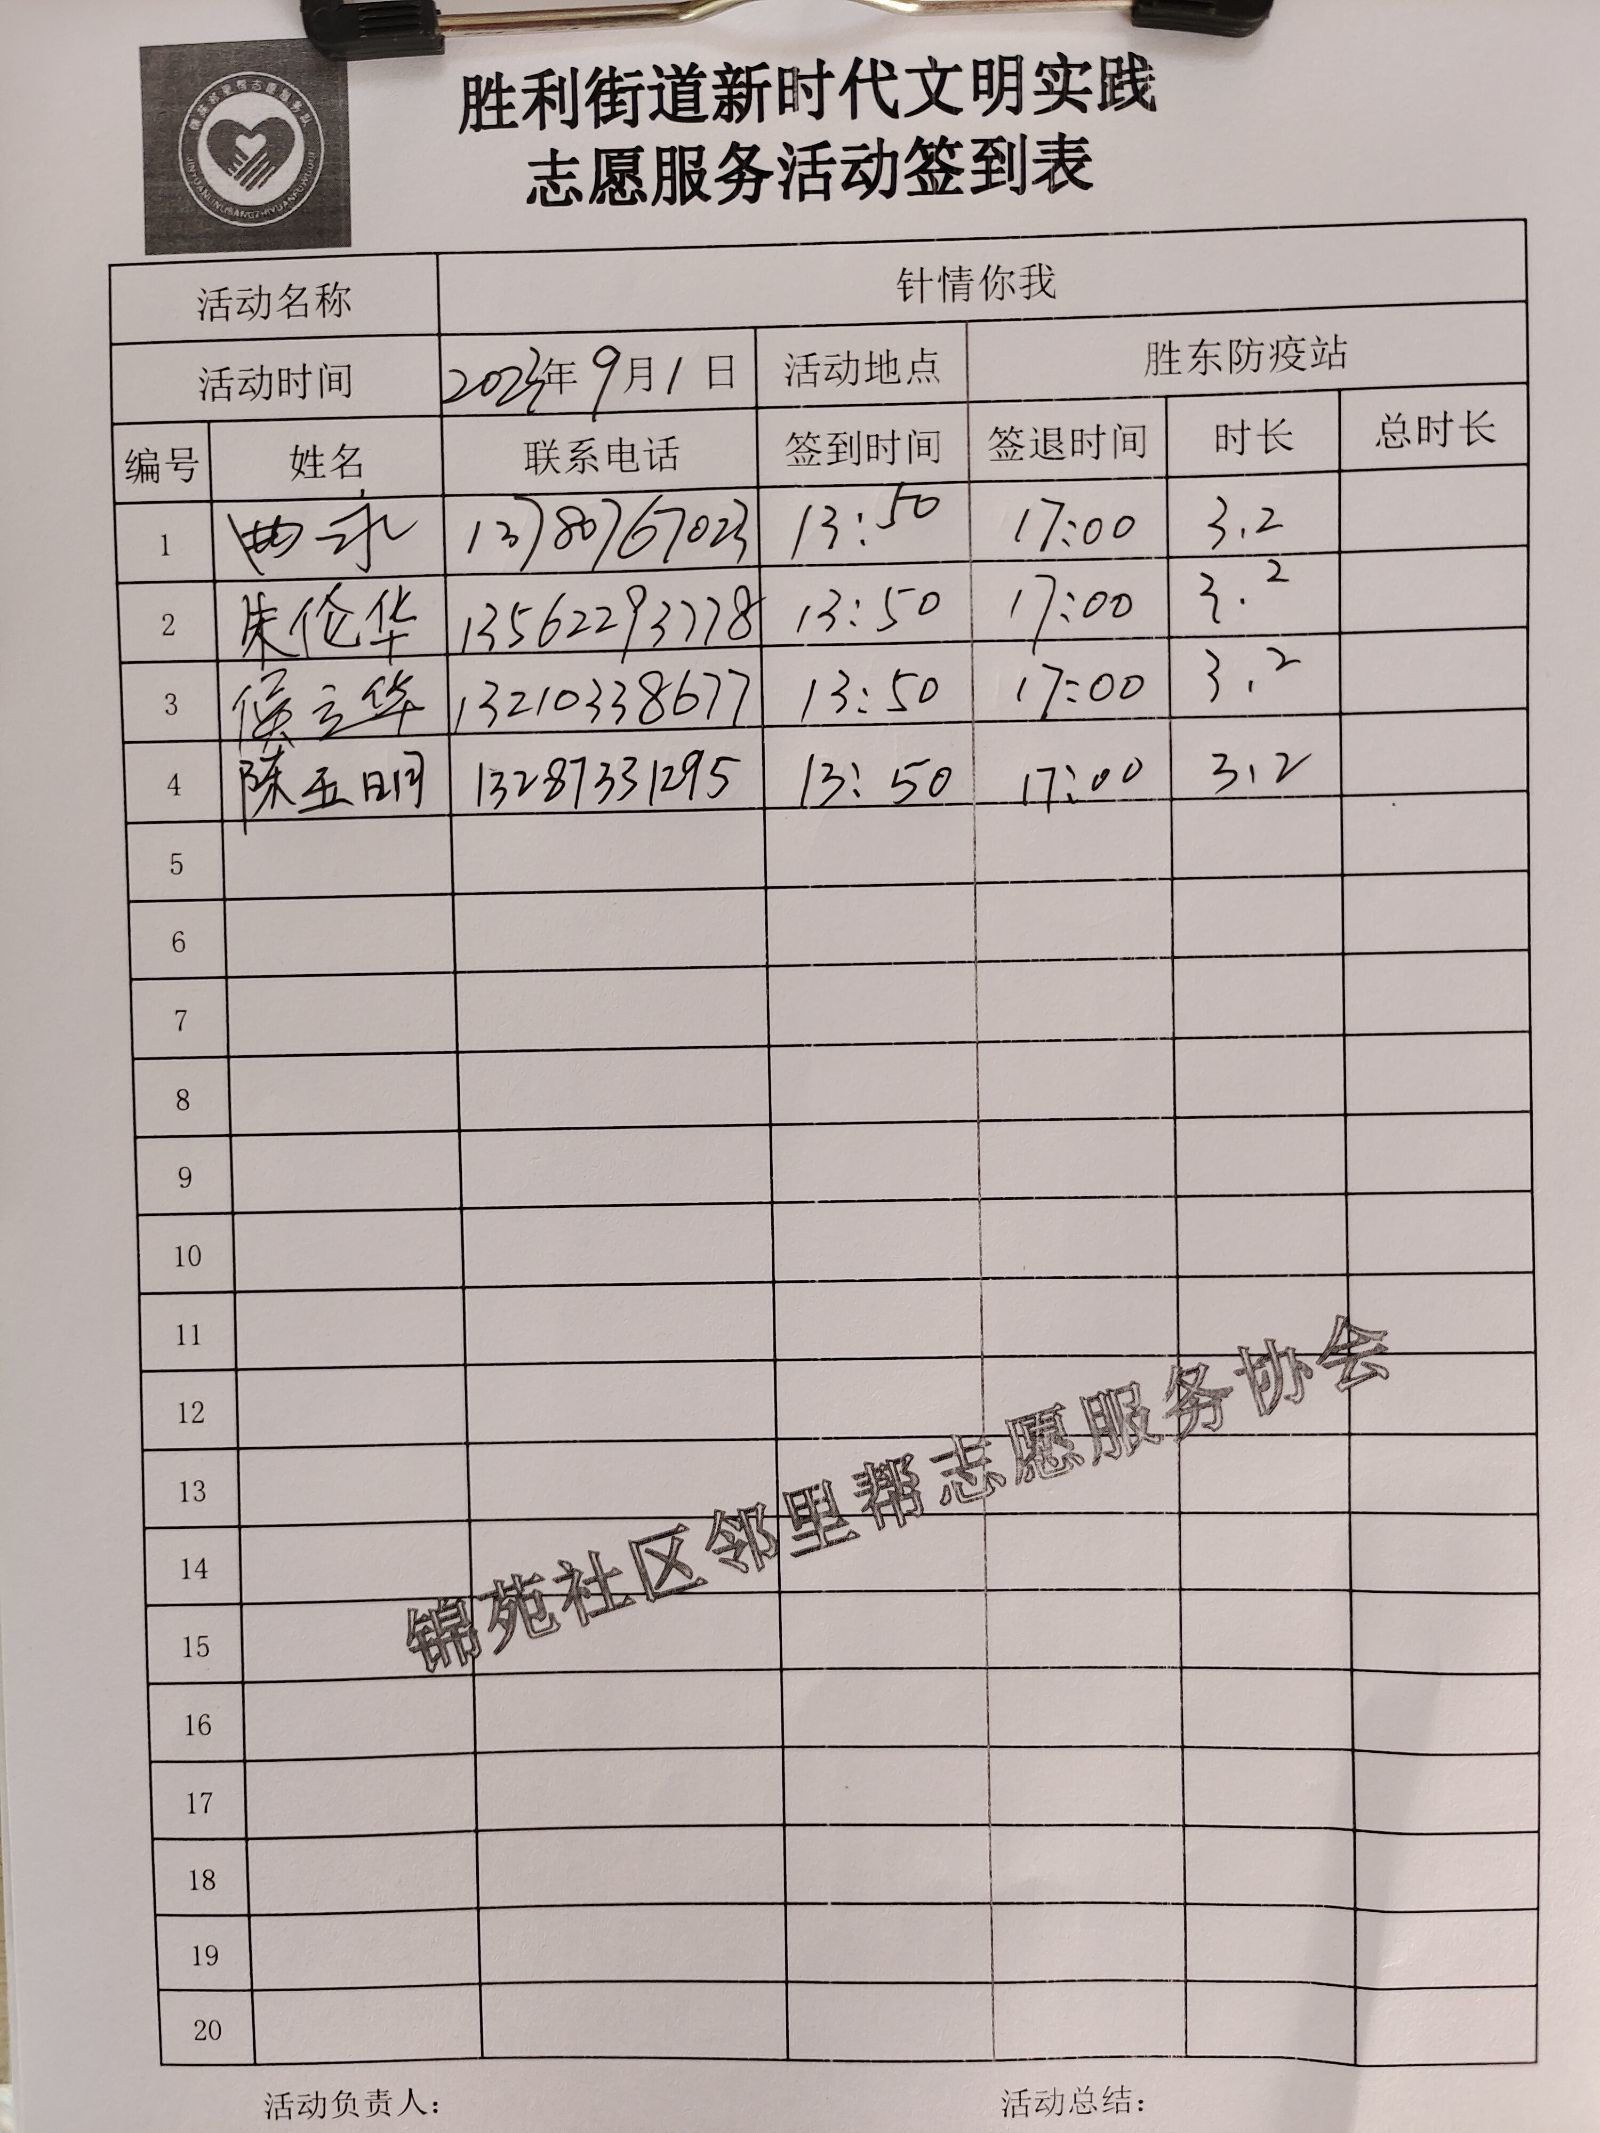 胜利街道新时代文明实践
志愿服务活动签到表
活动名称 针情你我
活动时间 2023年9月1日 活动地点 胜东防疫站
编号 姓名 联系电话 签到时间 签退时间 时长 总时长
1 曲永 13780767023 13:50 17:00 3.2
2 朱伦华 13562293778 13:50 17:00 3.2
3 侯立华 13210338677 13:50 17:00 3.2
4 陈玉明 13287331295 13:50 17:00 3.2
5
6
7
8
9
10
11
12
13
14
15
16
17
18
19
20
锦苑社区邻里帮志愿服务协会
活动负责人： 活动总结：